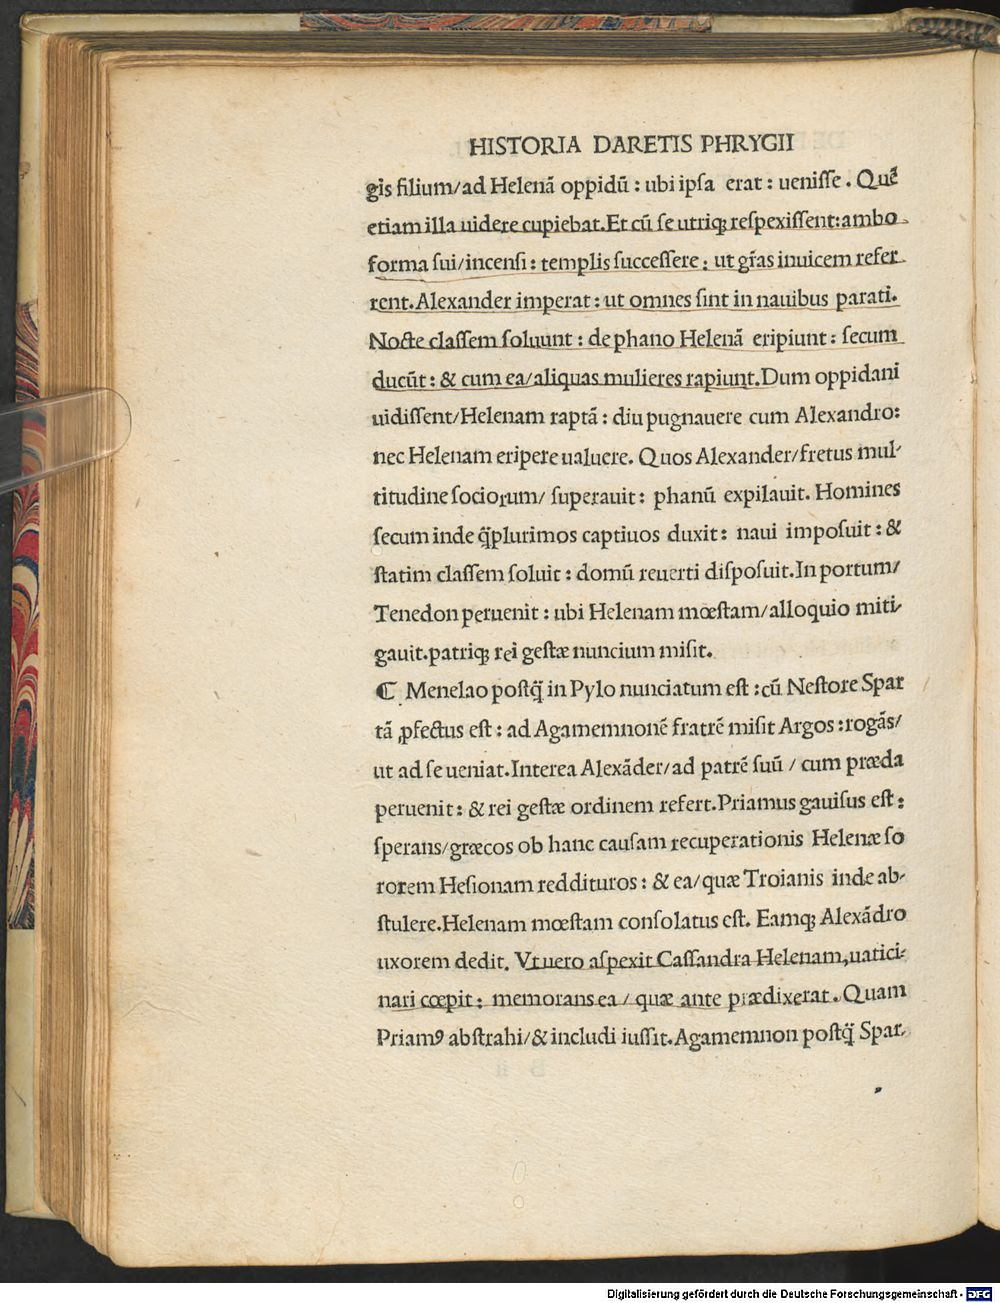 HISTORIA DARETIS PHRYGII
gis filium/ad Helenā oppidū : ubi ipſa erat : ueniſſe . Quē
etiam illa uidere cupiebat.Et cū ſe utriq; reſpexiſſent:ambo
forma ſui/incenſi : templis ſucceſſere : ut gr̄as inuicem refer
rent.Alexander imperat : ut omnes ſint in nauibus parati.
Nocte claſſem ſoluunt : de phano Helenā eripiunt : ſecum
ducūt : & cum ea/aliquas mulieres rapiunt.Dum oppidani
uidiſſent/Helenam raptā : diu pugnauere cum Alexandro:
nec Helenam eripere ualuere. Quos Alexander/fretus mul-
titudine ſociorum/ ſuperauit : phanū expilauit. Homines
ſecum inde q̄plurimos captiuos duxit : naui impoſuit : &
ſtatim claſſem ſoluit : domū reuerti diſpoſuit.In portum/
Tenedon peruenit : ubi Helenam mœſtam/alloquio miti-
gauit.patriq; rei geſtæ nuncium miſit.
⸿ Menelao poſtq̄ in Pylo nunciatum eſt : cū Neſtore Spar
tā ꝓfectus eſt : ad Agamemnonē fratrē miſit Argos :rogās/
ut ad ſe ueniat.Interea Alexāder/ad patrē ſuū / cum præda
peruenit : & rei geſtæ ordinem refert.Priamus gauiſus eſt :
ſperans/græcos ob hanc cauſam recuperationis Helenæ ſo
rorem Heſionam reddituros : & ea/quæ Troianis inde ab-
ſtulere.Helenam mœſtam conſolatus eſt. Eamq; Alexādro
uxorem dedit. Vt uero aſpexit Caſſandra Helenam,uatici-
nari cœpit : memorans ea / quæ ante prædixerat . Quam
Priamꝰ abſtrahi/& includi iuſſit.Agamemnon poſtq̄ Spar-
Digitalisierung gefördert durch die Deutsche Forschungsgemeinschaft - DFG